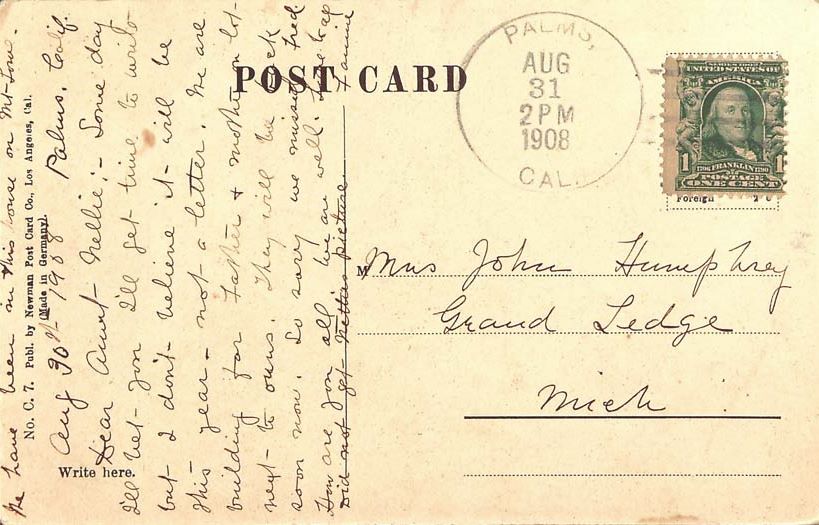 POST CARD
PALMS,
AUG
31
2 PM
1908
CAL.
SERIES 1902
UNITED STATES OF
AMERICA
1 1
1706 FRANKLIN 1790
POSTAGE
ONE CENT
Foreign 2c
M
Mrs John Humphrey
Grand Ledge
Mich
Write here.
No. C. 7. Publ. by Newman Post Card Co., Los Angeles, Cal.
(Made in Germany).
We have been in this house on Mt-
Aug 30th 1908 Palms, Calif.
Dear Aunt Nellie;- Some day
I'll bet you I'll get time to write
but I don't believe it will be
this year - not a letter. We are
building for Father & mother on lot
next to ours. They will be back
soon now. So sorry we missed Fred
How are you all. We are well.
Did not get Netties picture Fannie